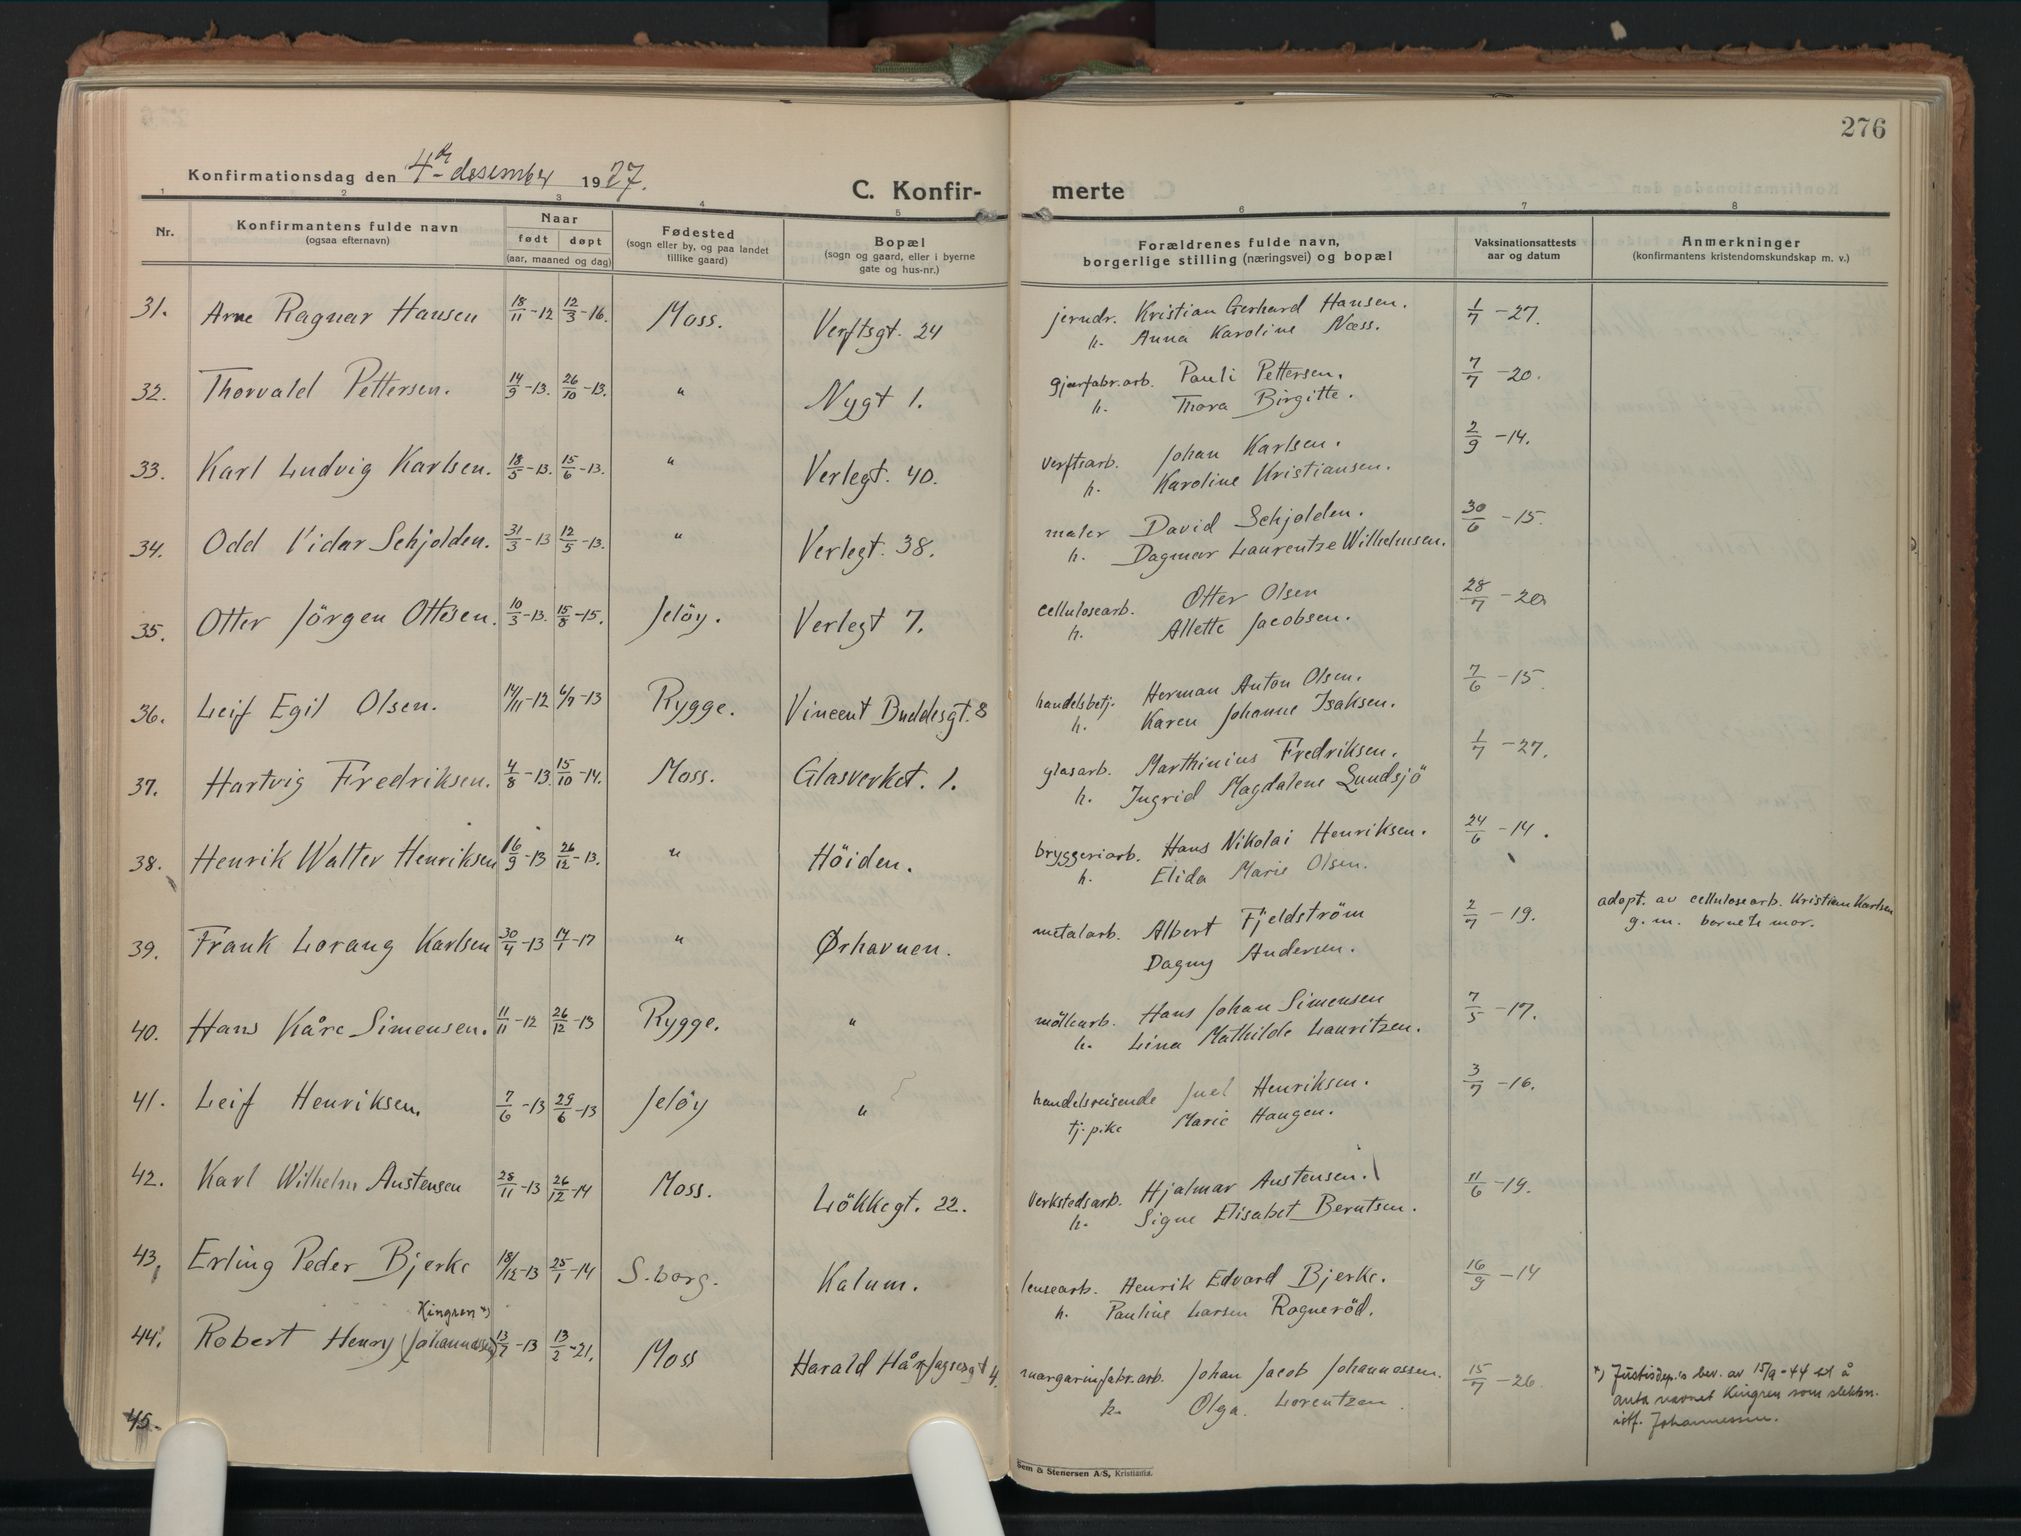 276
Konfirmationsdag den 4de desember 1927.
C. Konfir- merte
1 2 3 4 5 6 7 8
Nr.
Konfirmantens fulde navn
(ogsaa efternavn)
Naar
født døpt
(aar, maaned og dag)
Fødested
(sogn eller by, og paa landet
tillike gaard)
Bopæl
(sogn og gaard, eller i byerne
gate og hus-nr.)
Forældrenes fulde navn,
borgerlige stilling (næringsvei) og bopæl
Vaksinationsattests
aar og datum
Anmerkninger
(konfirmantens kristendomskundskap m. v.)
31. Arne Ragnar Hansen 18/11-12 12/3-16. Moss. Verftsgt. 24 jerndr. Kristian Gerhard Hansen. 1/7-27.
h. Anna Karoline Næss.
32. Thorvald Pettersen. 14/9-13. 26/10-13. " Nygt 1. gjærfabr.arb. Pauli Pettersen. 7/7-20.
h. Thora Birgitte.
33. Karl Ludvig Karlsen. 18/5-13. 15/6-13. " Verlegt. 40. verftsarb. Johan Karlsen. 2/9-14.
h. Karoline Kristiansen.
34. Odd Vidar Schjolden. 31/3-13 12/5-13. " Verlegt. 38. maler David Schjolden. 30/6-15.
h. Dagmar Laurentze Wilhelmsen.
35. Otter Jörgen Ottesen. 10/3-13. 15/8-15. Jelöy. Verlegt 7. cellulosearb. Otter Olsen 28/7-20
h. Allette Jacobsen.
36. Leif Egil Olsen. 14/11-12 6/7-13 Rygge. Vincent Buddesgt. 8 handelsbetj. Herman Anton Olsen. 7/6-15.
h. Karen Johanne Isaksen.
37. Hartvig Fredriksen. 4/8-13. 15/10-14. Moss. Glasverket. 1. glasarb. Marthinius Fredriksen. 1/7-27.
h. Ingrid Magdalene Lundsjö
38. Henrik Walter Henriksen 16/9-13 26/12-13. " Höiden. bryggeriarb. Hans Nikolai Henriksen. 24/6-14.
h. Elida Marie Olsen.
39. Frank Lorang Karlsen 30/4-13 14/1-17 " Ørhavnen. metalarb. Albert Fjeldström 2/7-19. adopt. av cellulosearb. Kristian Karlsen
Dagny Andersen. g. m. barnets mor.
40. Hans Kåre Simensen. 11/11-12 26/12-13 Rygge. " möllearb. Hans Johan Simensen 7/5-17.
h. Lina Mathilde Lauritzen.
41. Leif Henriksen. 7/6-13 29/6-13 Jelöy " handelsreisende Juel Henriksen. 3/7-16.
tj.pike Marie Haugen.
42. Karl Wilhelm Austensen 28/11-13 26/12-14 Moss. Lökkegt. 22. verkstedsarb. Hjalmar Austensen. 11/6-19.
h. Signe Elisabet Berntsen.
43. Erling Peder Bjerke 18/12-13 25/1-14 S.borg. Kalum. lensearb. Henrik Edvard Bjerke. 16/9-14
h. Pauline Larsen Ragneröd.
Kingren *)
44. Robert Henry (Johannessen) 13/7-13 13/2-21. Moss Harald Hårfagresgt 4. margarinfabr.arb. Johan Jacob Johannessen. 15/7-26. *) Justisdep.'s bev. av 15/9-44 til å
h. Olga Lorentzen. anta navnet Kingren som slektsn.
istf. Johannessen.
45.
Sem & Stenersen A/S, Kristiania.